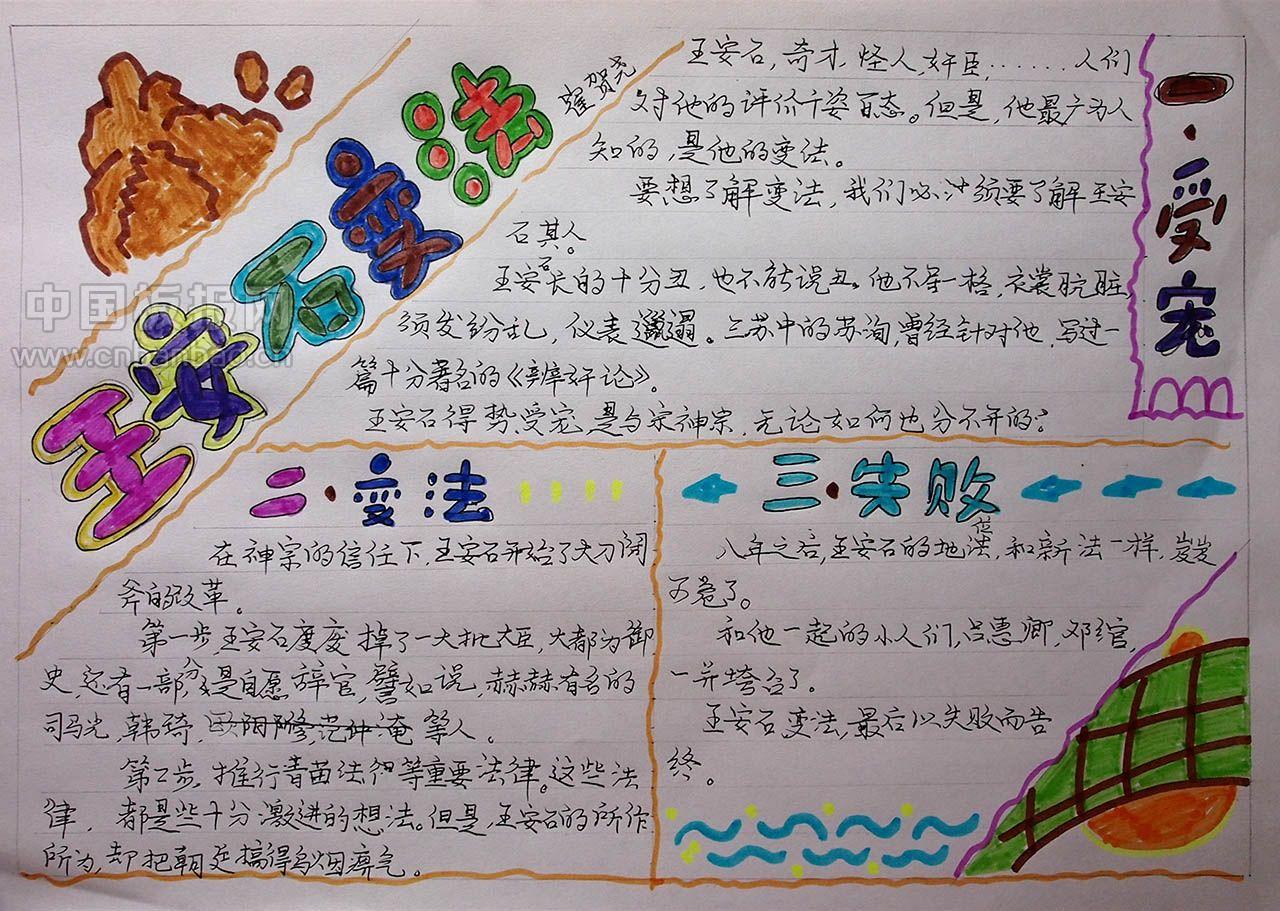 王安石变法
中国板报网
www.cnbanbao.cn
贺尧
一·受宠
王安石，奇才，怪人，奸臣，……人们
对他的评价千姿百态。但是，他最广为人
知的，是他的变法。
要想了解变法，我们必须要了解王安
石其人。
王安石长的十分丑，也不能说丑。他不拘一格，衣裳肮脏，
须发纷乱，仪表邋遢。三苏中的苏洵，曾经针对他，写过一
篇十分著名的《辨奸论》。
王安石得势受宠，是与宋神宗，无论如何也分不开的：
二·变法
在神宗的信任下，王安石开始了大刀阔
斧的改革。
第一步，王安石废掉了一大批大臣，大都为御
史，还有一部分是自愿辞官，譬如说，赫赫有名的
司马光，韩琦，欧阳修，范仲淹等人。
第二步，推行青苗法等重要法律。这些法
律，都是些十分激进的想法。但是，王安石的所作
所为，却把朝廷搞得乌烟瘴气。
三·失败
八年之后，王安石的地位，和新法一样，岌岌
可危了。
和他一起的小人们，吕惠卿，邓绾，
一并垮台了。
王安石变法，最后以失败而告
终。